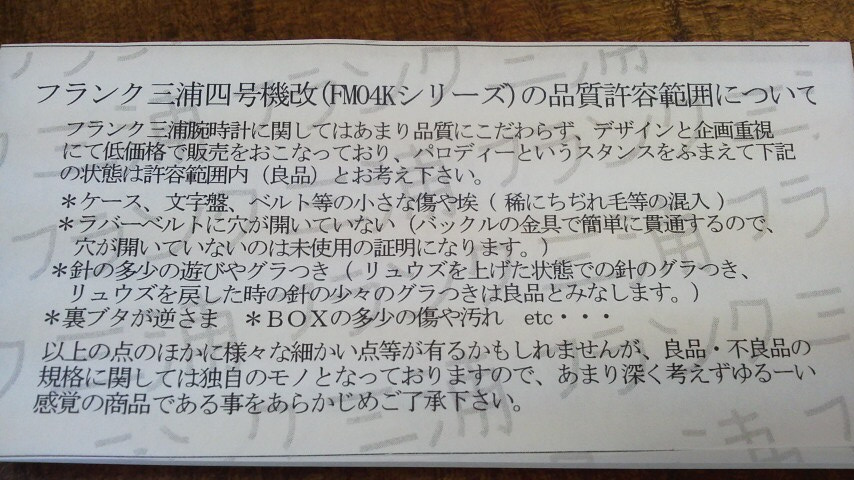 フランク三浦四号機改(FM04Kシリーズ)の品質許容範囲について
フランク三浦腕時計に関してはあまり品質にこだわらず、デザインと企画重視
にて低価格で販売をおこなっており、パロディーというスタンスをふまえて下記
の状態は許容範囲内(良品)とお考え下さい。
*ケース、文字盤、ベルト等の小さな傷や埃(稀にちぢれ毛等の混入)
*ラバーベルトに穴が開いていない(バックルの金具で簡単に貫通するので、
穴が開いていないのは未使用の証明になります。)
*針の多少の遊びやグラつき(リュウズを上げた状態での針のグラつき、
リュウズを戻した時の針の少々のグラつきは良品とみなします。)
*裏ブタが逆さま *BOXの多少の傷や汚れ etc・・・
以上の点のほかに様々な細かい点等が有るかもしれませんが、良品・不良品の
規格に関しては独自のモノとなっておりますので、あまり深く考えずゆるーい
感覚の商品である事をあらかじめご了承下さい。